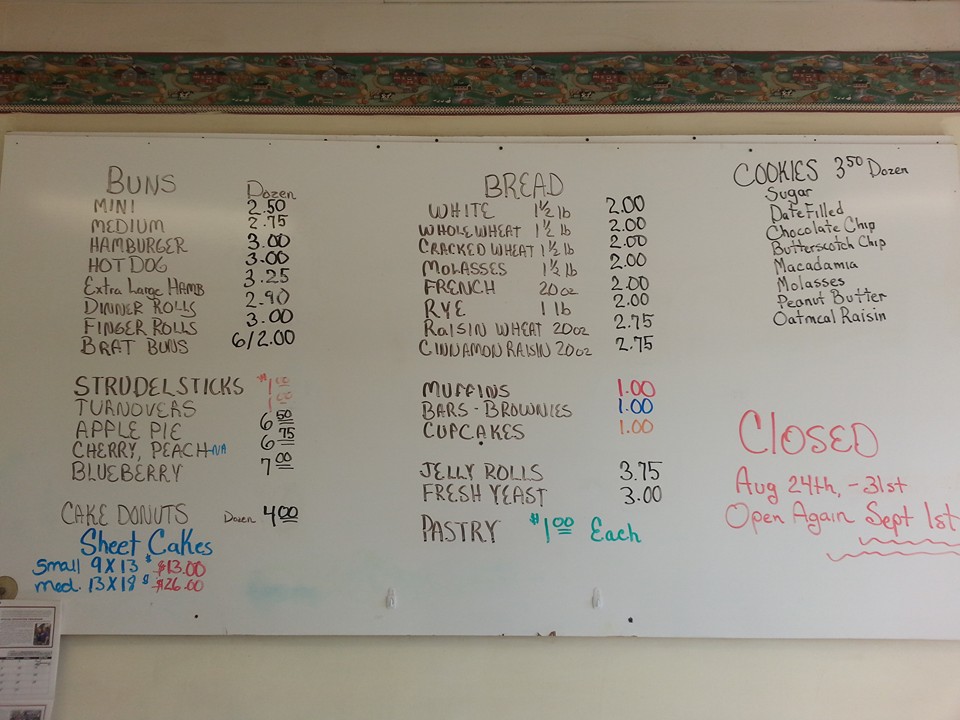 BUNS Dozen
MINI 2.50
MEDIUM 2.75
HAMBURGER 3.00
HOT DOG 3.00
Extra Large HAMB 3.25
DINNER ROLLS 2.90
FINGER ROLLS 3.00
BRAT BUNS 6/2.00
STRUDEL STICKS $1.00
TURNOVERS 1.00
APPLE PIE 6.50
CHERRY, PEACH-NA 6.75
BLUEBERRY 7.00
CAKE DONUTS Dozen 4.00
Sheet Cakes
Small 9 X 13 $ $13.00
med. 13 X 18 $ $26.00
BREAD
WHITE 1½ lb 2.00
WHOLE WHEAT 1½ lb 2.00
CRACKED WHEAT 1½ lb 2.00
MOLASSES 1½ lb 2.00
FRENCH 20oz 2.00
RYE 1 lb 2.00
RAISIN WHEAT 20oz 2.75
CINNAMON RAISIN 20oz 2.75
MUFFINS 1.00
BARS - BROWNIES 1.00
CUPCAKES 1.00
JELLY ROLLS 3.75
FRESH YEAST 3.00
PASTRY $1.00 Each
COOKIES 3.50 Dozen
Sugar
Date Filled
Chocolate Chip
Butterscotch Chip
Macadamia
Molasses
Peanut Butter
Oatmeal Raisin
ClOSED
Aug 24th, - 31st
Open Again Sept 1st